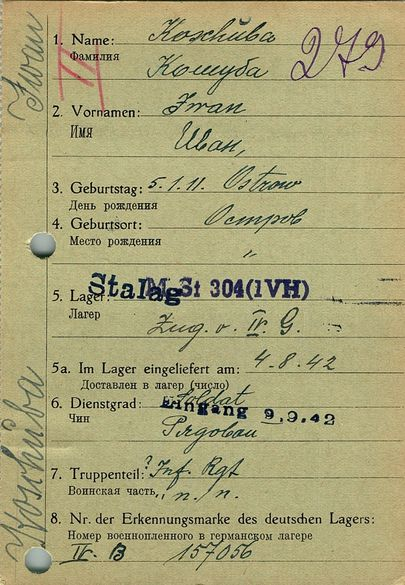 Iwan
Koschuba
II
279
1. Name: Koschuba
Фамилия
Кошуба
2. Vornamen: Iwan
Имя
Иван,
3. Geburtstag: 5.1.11. Ostrow
День рождения
4. Geburtsort: Остров
Место рождения
"
Stalag
M. St 304(IVH)
5. Lager:
Лагер
Zug. v. IV G.
5a. Im Lager eingeliefert am: 4.8.42
Доставлен в лагер (число)
6. Dienstgrad: Soldat
Eingang 9.9.42
Чин
Рядовой
7. Truppenteil: ? Inf. Rgt
Воинская часть, " п. п.
8. Nr. der Erkennungsmarke des deutschen Lagers:
Номер военнопленного в германском лагере
IV B 157056